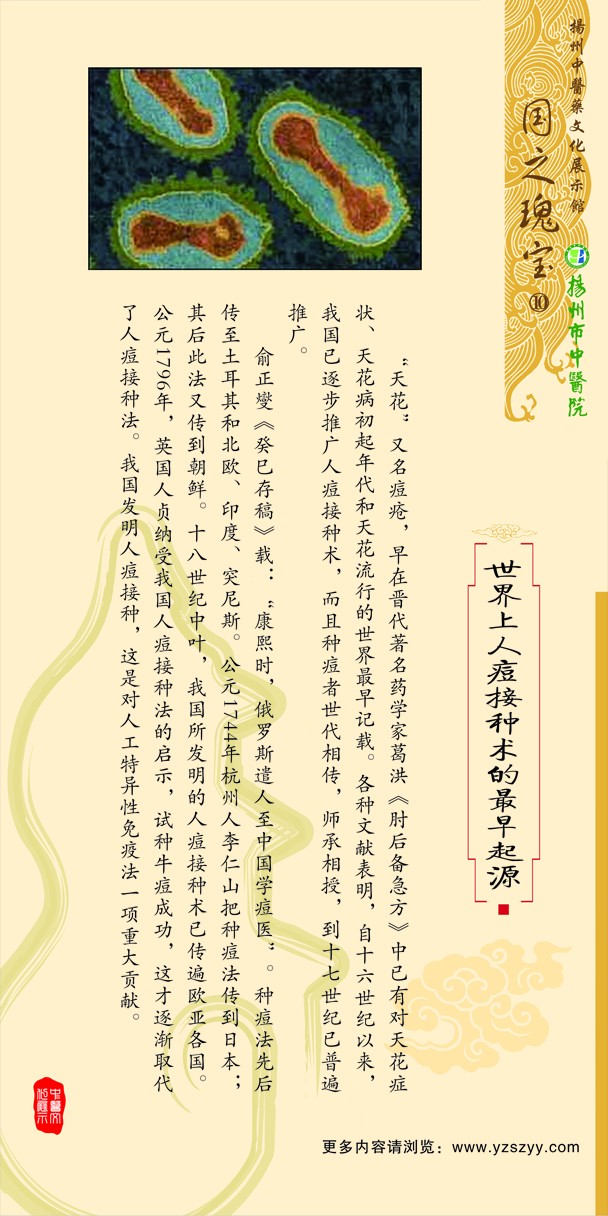 揚州中醫藥文化展示館
国之瑰宝⑩
揚州市中醫院
世界上人痘接种术的最早起源
“天花”又名痘疮，早在晋代著名药学家葛洪《肘后备急方》中已有对天花症
状、天花病初起年代和天花流行的世界最早记载。各种文献表明，自十六世纪以来，
我国已逐步推广人痘接种术，而且种痘者世代相传，师承相授，到十七世纪已普遍
推广。
俞正燮《癸巳存稿》载：“康熙时，俄罗斯遣人至中国学痘医”。种痘法先后
传至土耳其和北欧、印度、突尼斯。公元1744年杭州人李仁山把种痘法传到日本；
其后此法又传到朝鲜。十八世纪中叶，我国所发明的人痘接种术已传遍欧亚各国。
公元1796年，英国人贞纳受我国人痘接种法的启示，试种牛痘成功，这才逐渐取代
了人痘接种法。我国发明人痘接种，这是对人工特异性免疫法一项重大贡献。
更多内容请浏览：www.yzszyy.com